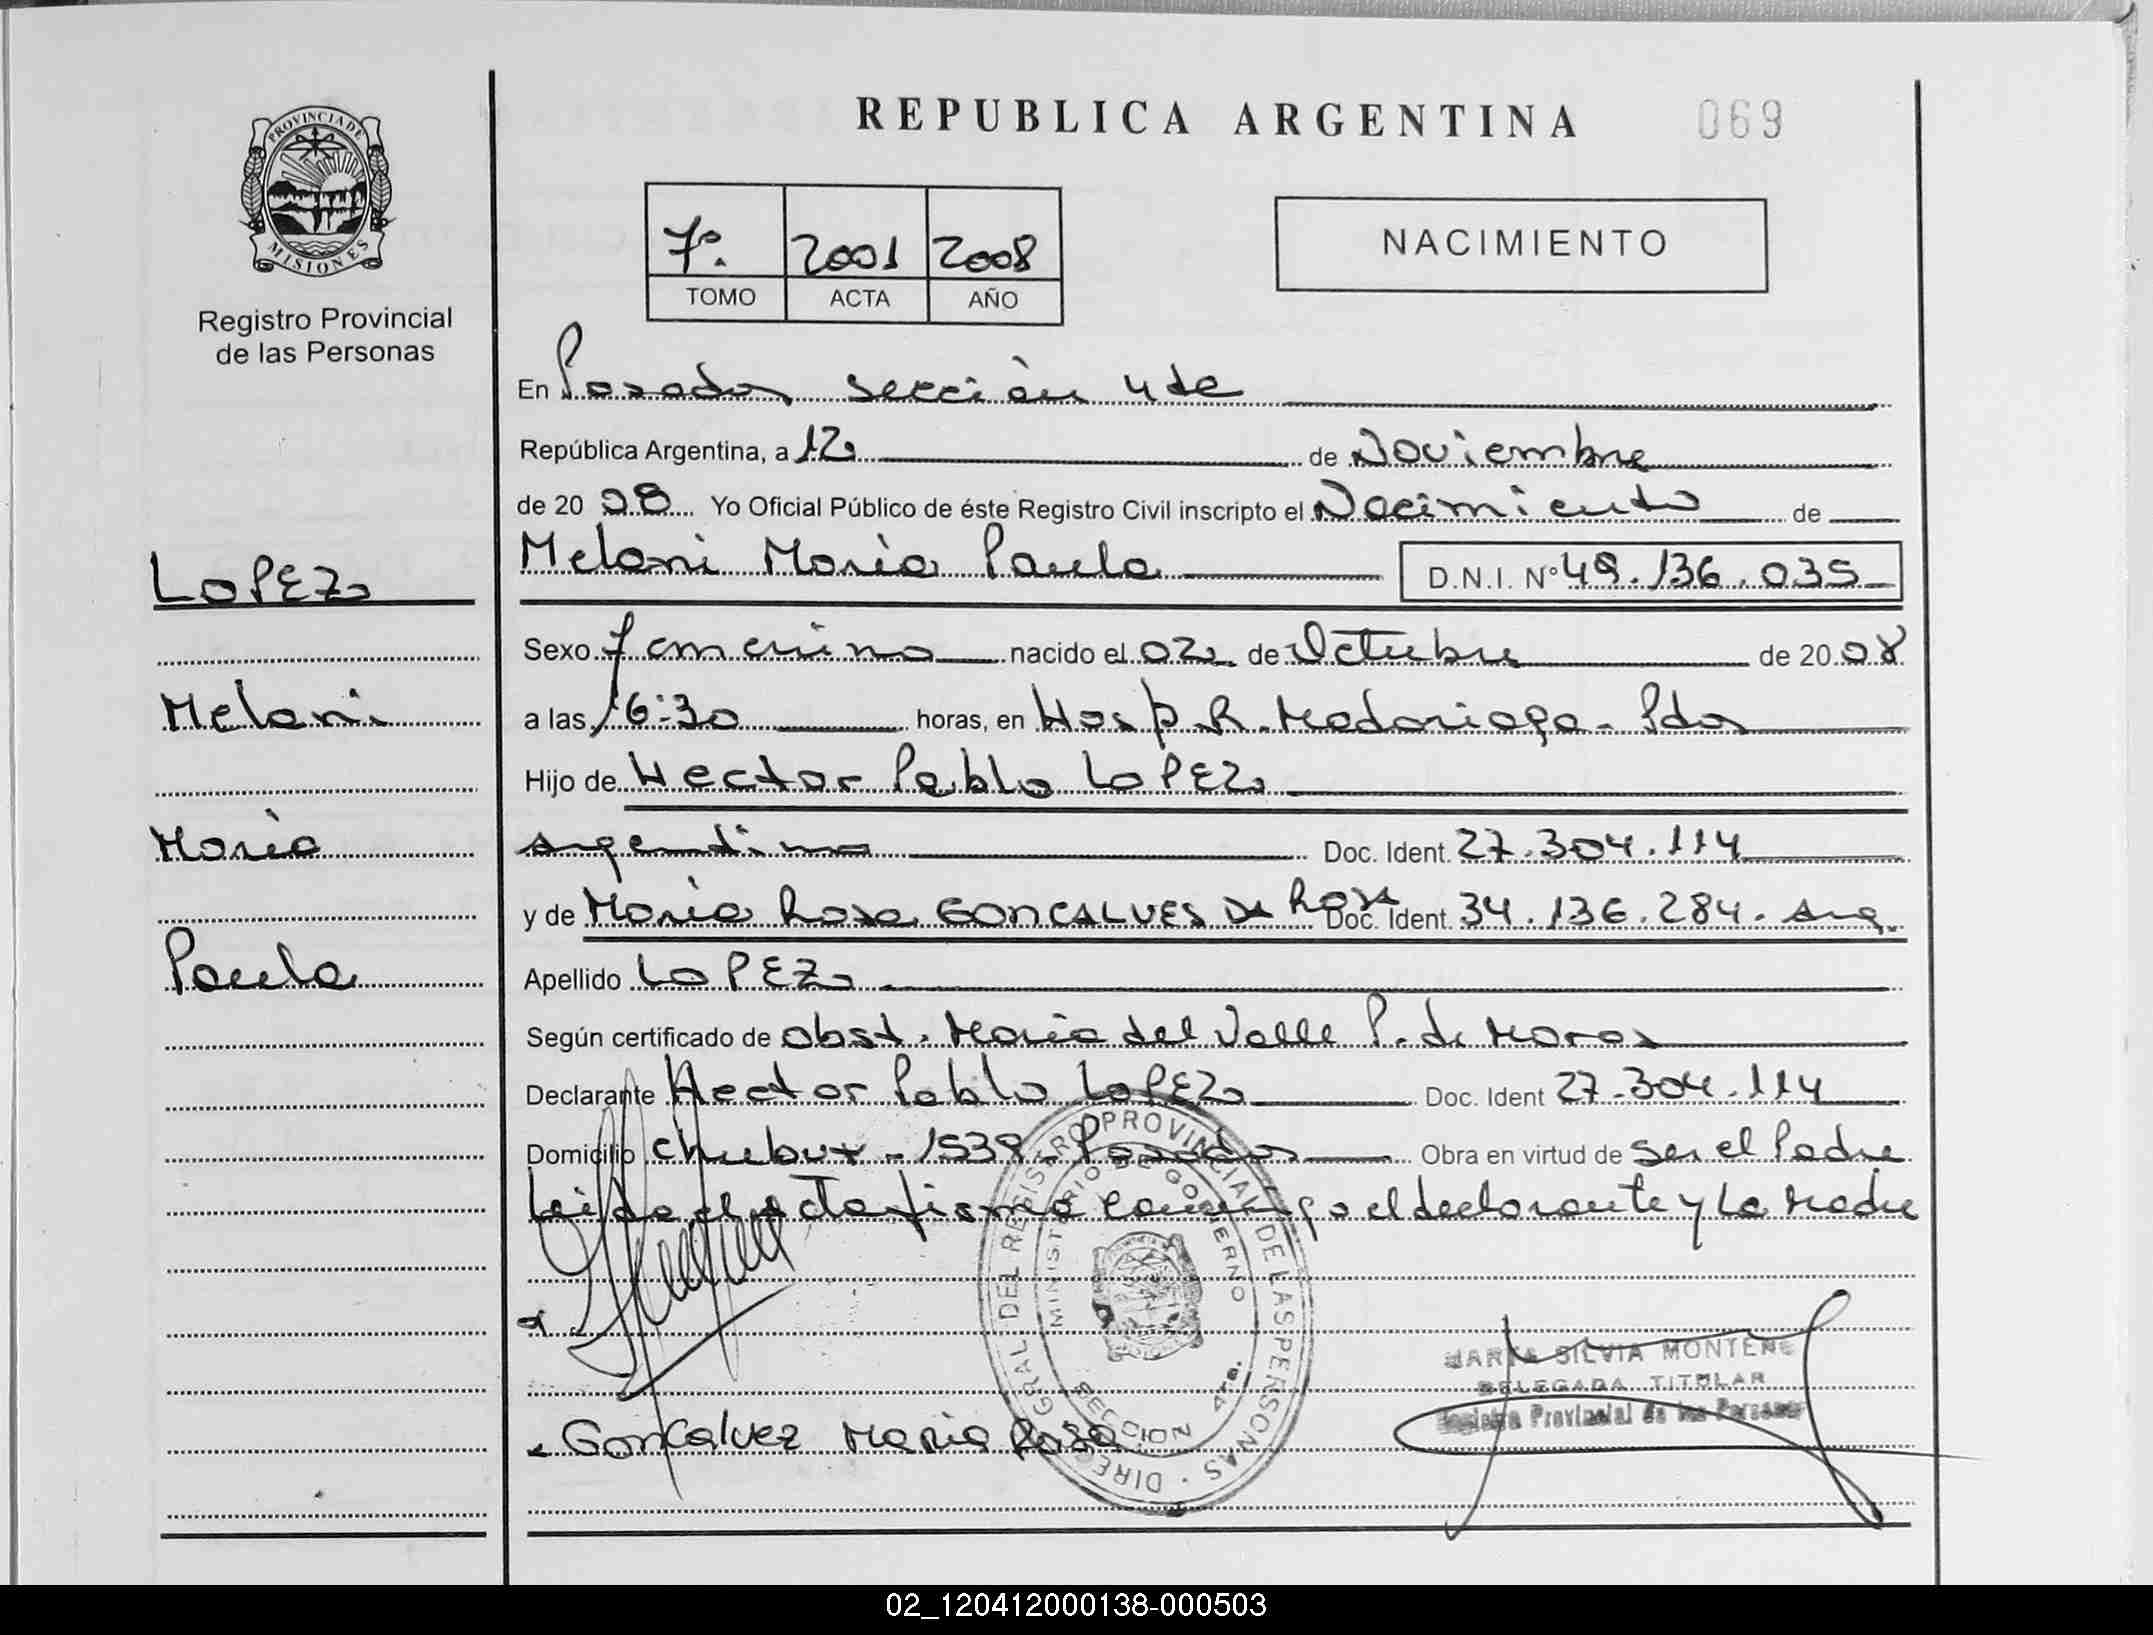 REPUBLICA ARGENTINA
069
PROVINCIA DE
MISIONES
Registro Provincial
de las Personas
7º. 2001 2008
TOMO ACTA AÑO
NACIMIENTO
En Posadas sección 4ta
República Argentina, a 12 de Noviembre
de 20 08 Yo Oficial Público de éste Registro Civil inscripto el Nacimiento de
Melani María Paula D.N.I. Nº 49.136.035
LOPEZ
Sexo femenino nacido el 02 de Octubre de 20 08
Melani
a las 16:30 horas, en Hosp. R. Madariaga - Pdas
Hijo de Hector Pablo LOPEZ
María
argentino Doc. Ident. 27.304.114
y de María Rosa GONCALVES DA ROSA Doc. Ident. 34.136.284. Arg.
Paula
Apellido LOPEZ
Según certificado de obst. María del Valle P. de Moros
Declarante Hector Pablo LOPEZ Doc. Ident 27.304.114
Domicilio Chubut - 1539 - Posadas Obra en virtud de ser el Padre
Leida el acta firma conmigo el declarante y la Madre
DIREC. GRAL. DEL REGISTRO PROVINCIAL DE LAS PERSONAS
MINISTERIO DE GOBIERNO
SECCION 4ta.
MARTA SILVIA MONTENE
DELEGADA TITULAR
Registro Provincial de las Personas
Goncalvez Maria Rosa
02_120412000138-000503